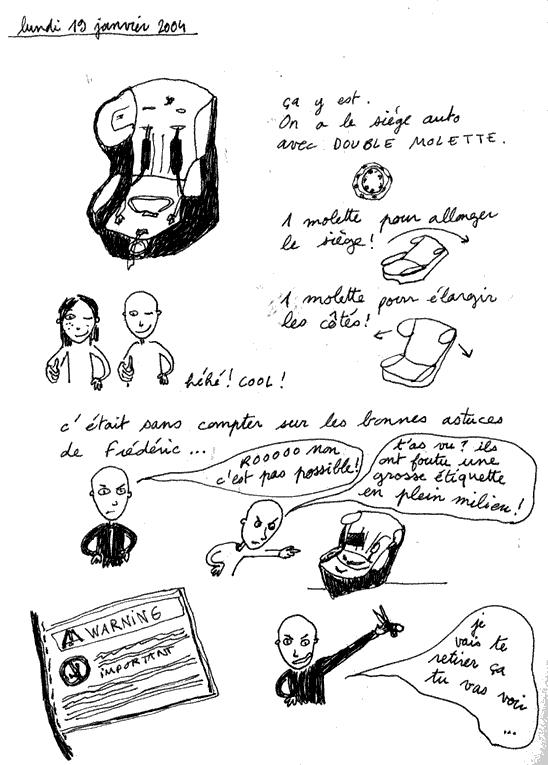 lundi 19 janvier 2004
ça y est.
On a le siége auto
avec DOUBLE MOLETTE.
1 molette pour allonger
le siège!
1 molette pour élargir
les côtés!
héhé! COOL!
c'était sans compter sur les bonnes astuces
de Frédéric...
ROOOOO non
c'est pas possible!
t'as vu? ils
ont foutu une
grosse étiquette
en plein milieu!
WARNING
IMPORTANT
je
vais te
retirer ça
tu vas voir
...